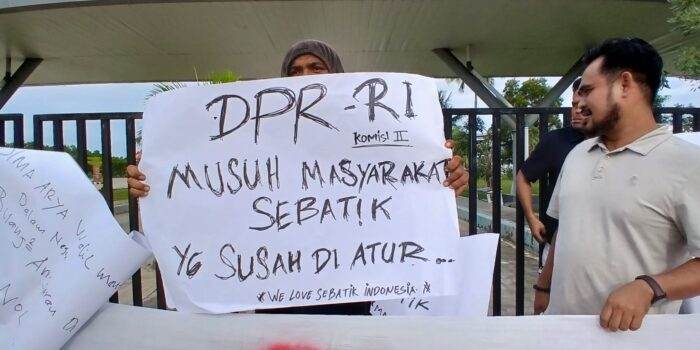 DPR-RI
KOMISI II
MUSUH MASYARAKAT
SEBATIK
YG SUSAH DI ATUR...
* WE LOVE SEBATIK INDONESIA. *
BIMA ARYA Wakil
Dalam Neg